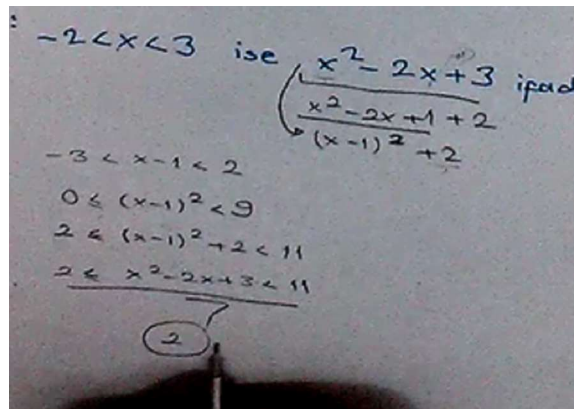 :
-2<x<3 ise x²-2x+3 ifad
x²-2x+1+2
(x-1)²+2
-3<x-1<2
0≤(x-1)²<9
2≤(x-1)²+2<11
2≤x²-2x+3<11
2